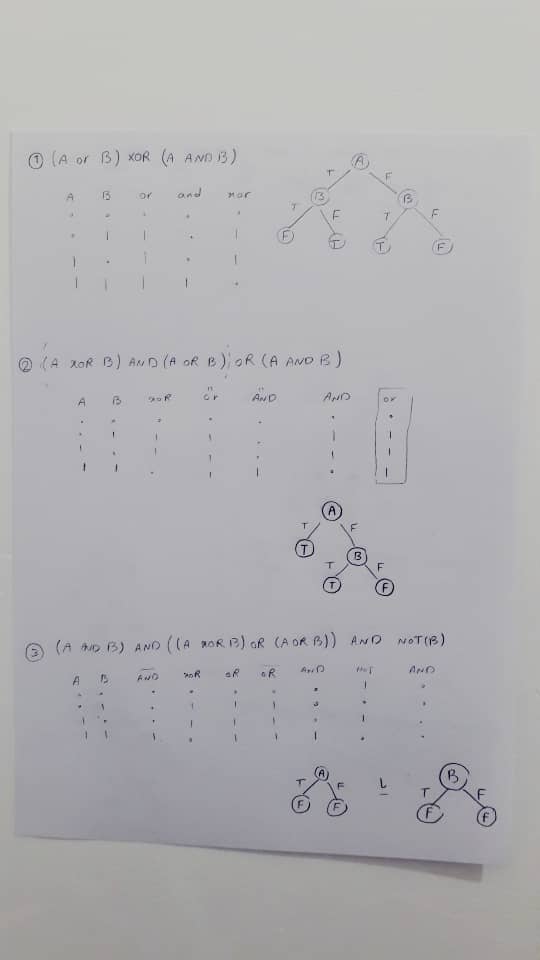 ① (A or B) XOR (A AND B)
A B or and xor
. . . . .
. 1 1 . 1
1 . 1 . 1
1 1 1 1 .
A
T F
B B
T F T F
F T T F
② (A XOR B) AND (A OR B) OR (A AND B)
A B XOR or AND AND or
. . . . . . .
. 1 1 1 . 1 1
1 . 1 1 . 1 1
1 1 . 1 1 . 1
A
T F
T B
T F
T F
③ (A AND B) AND ((A XOR B) OR (A OR B)) AND NOT(B)
A B AND XOR OR OR AND NOT AND
. . . . . . . 1 .
. 1 . 1 1 1 . . .
1 . . 1 1 1 . 1 .
1 1 1 . 1 1 1 . .
A B
T F T F
F F F F